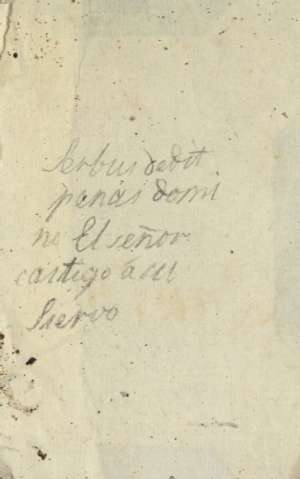 Serbus dedit
penas domi
no El señor
castigo á su
Siervo